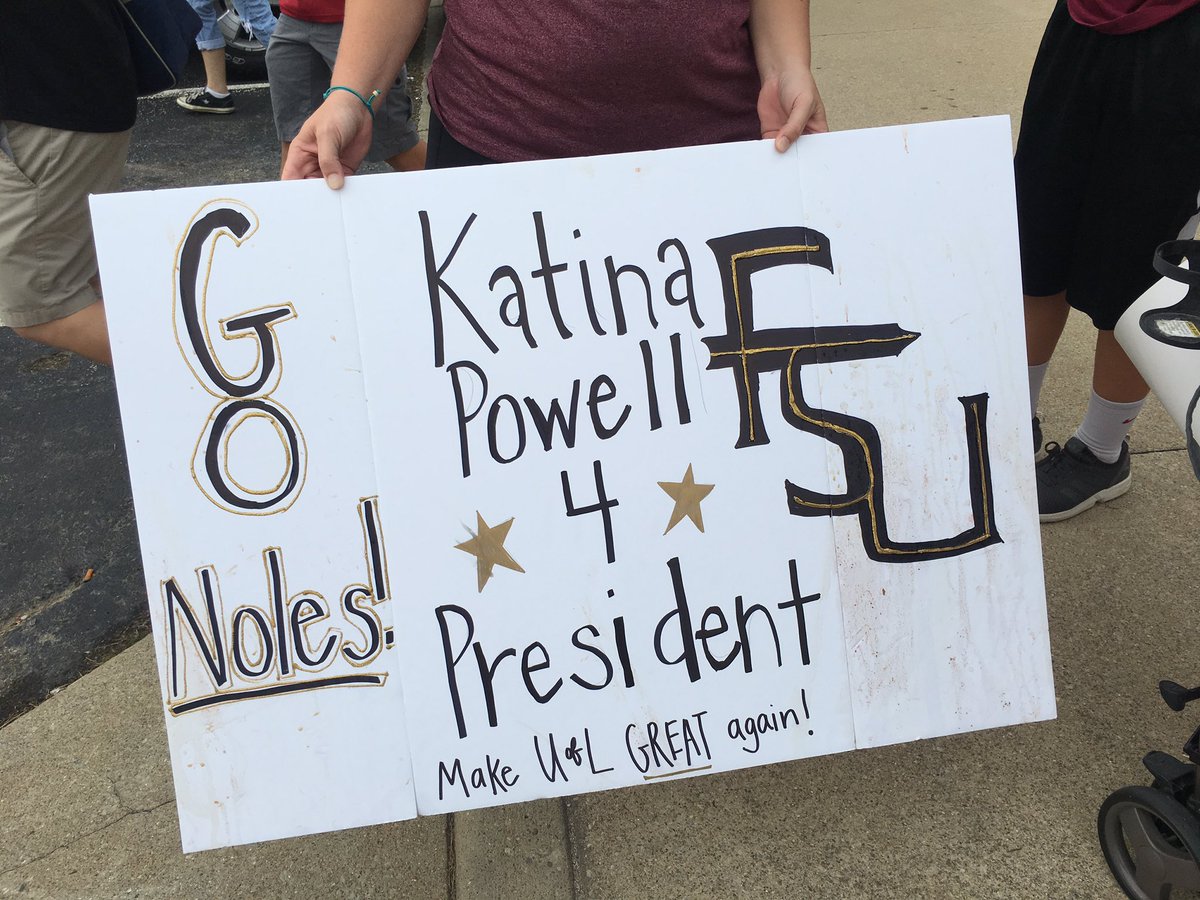 GO
Noles!
Katina
Powell
4
President
Make UofL GREAT again!
FSU